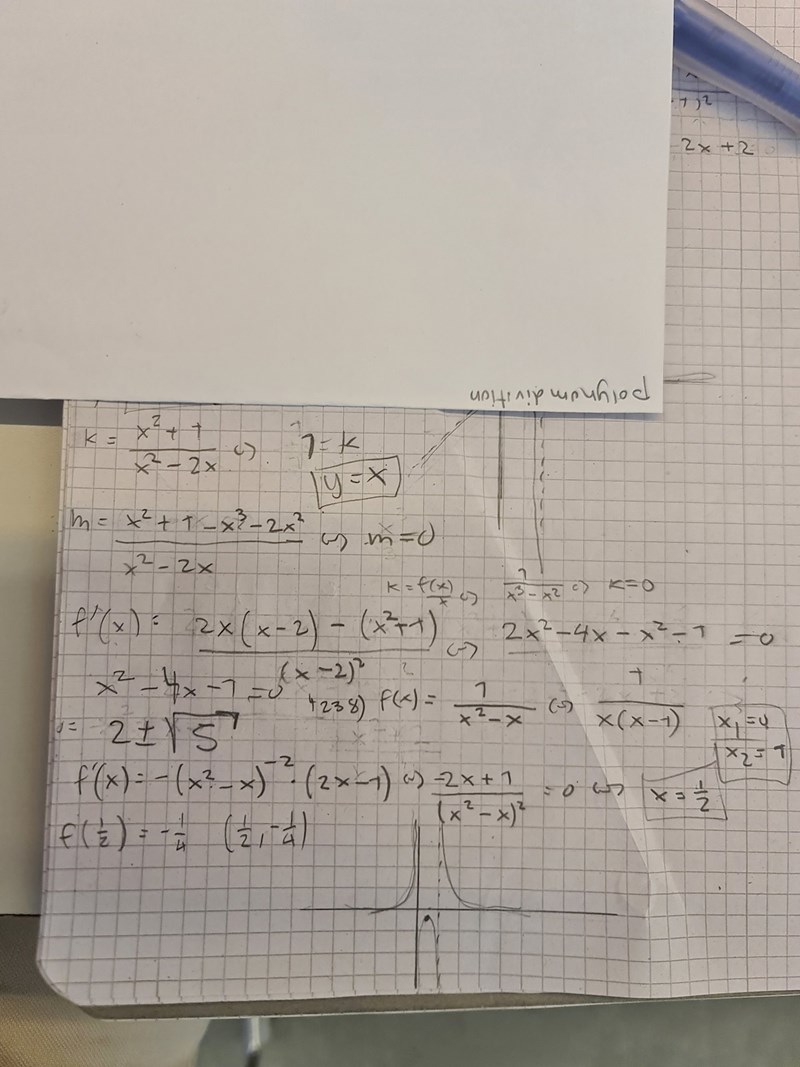 +1)²
2x + 2
polynom divition
k = (x² + 1)/(x² - 2x) <=> 1 = k
y = x
m = (x² + 1 - x³ - 2x²)/(x² - 2x) <=> m = 0
k = f(x)/x <=> 1/(x³ - x²) <=> k = 0
f'(x) = (2x(x - 2) - (x² + 1))/(x - 2)² <=> 2x² - 4x - x² - 1 = 0
x² - 4x - 1 = 0
4238) f(x) = 1/(x² - x) <=> 1/(x(x - 1))
x₁ = 0
x₂ = 1
= 2 ± √5
f'(x) = -(x² - x)⁻² · (2x - 1) <=> (-2x + 1)/(x² - x)² = 0 <=> x = 1/2
f(1/2) = -1/4 (1/2, -1/4)